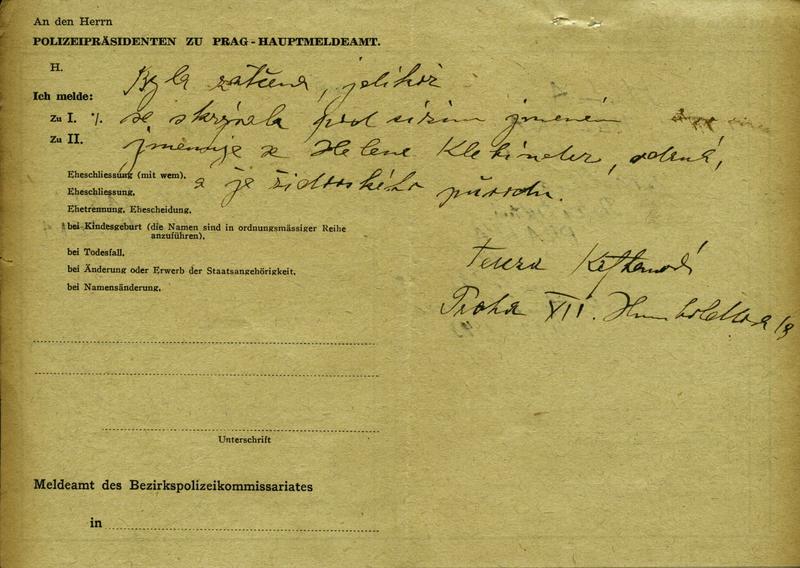 An den Herrn
POLIZEIPRÄSIDENTEN ZU PRAG-HAUPTMELDEAMT.
H.
Byla zatčena, jelikož
Ich melde:
Zu I. %. se skrývala pod cizím jménem
Zu II. jmenuje se Helene Klebinder, vdaná,
Eheschliessung (mit wem).
a je židovského původu.
Eheschliessung.
Ehetrennung, Ehescheidung.
bei Kindesgeburt (die Namen sind in ordnungsmässiger Reihe
anzuführen).
bei Todesfall.
bei Änderung oder Erwerb der Staatsangehörigkeit.
bei Namensänderung.
Tereza
Praha VII. Humboldtova
Unterschrift
Meldeamt des Bezirkspolizeikommissariates
in